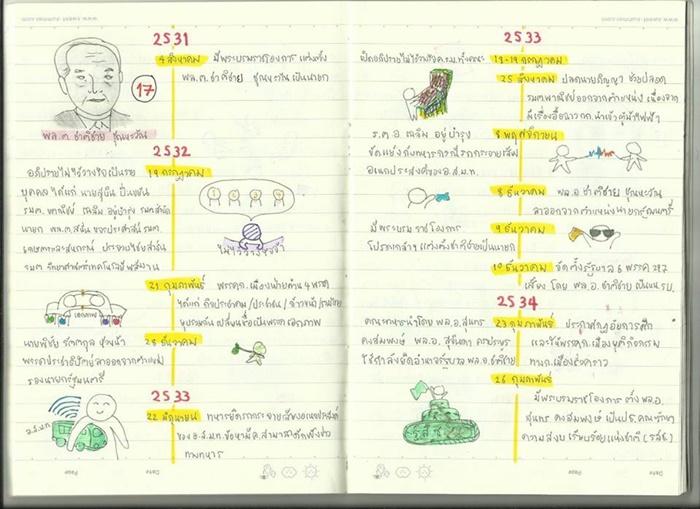 2531
4 สิงหาคม มีพระบรมราชโองการ แต่งตั้ง
พล.ต. ชาติชาย ชุณหะวัณ เป็นนายก
17
พล.ต. ชาติชาย ชุณหะวัณ
2532
อภิปรายไม่ไว้วางใจเป็นราย
19 กรกฎาคม
บุคคล ได้แก่
รมต. พาณิชย์ เฉลิม อยู่บำรุง รมต.สำนัก
นายก
เกษตรและสหกรณ์ ประจวบ ไชยสาส์น
รมต. วิทยาศาสตร์เทคโนโลยีฯ
ไม่ไว้วางใจ
21 กุมภาพันธ์ พรรคการเมืองฝ่ายค้าน 4 พรรค
ได้แก่ กิจประชาคม / ประชาชน / ก้าวหน้า / รวมไทย
ยุบรวมกัน เปลี่ยนชื่อเป็นพรรคเอกภาพ
เอกภาพ
นายพิชัย รัตตกุล หัวหน้า
28 ธันวาคม
พรรคประชาธิปัตย์ลาออกจากตำแหน่ง
รองนายกรัฐมนตรี
2533
อ.ส.ม.ท.
22 มิถุนายน ทหารยึดรถกระจายเสียงอเนกประสงค์
ของ อ.ส.ม.ท. ข้อหามีค.สามารถดักฟังข่าว
ทางทหาร
2533
เปิดอภิปรายไม่ไว้วางใจ ค.ร.ม. ทั้งคณะ 18-19 กรกฎาคม
25 สิงหาคม
รมต.พาณิชย์ออกจากตำแหน่ง เนื่องจาก
ร.ต.อ. เฉลิม อยู่บำรุง
8 พฤศจิกายน
ขัดแย้งกับทหารกรณีรถกระจายเสียง
อเนกประสงค์ของ อ.ส.ม.ท.
8 ธันวาคม พล.อ. ชาติชาย ชุณหะวัณ
ลาออกจากตำแหน่งนายกรัฐมนตรี
มีพระบรมราชโองการ
9 ธันวาคม
โปรดเกล้าฯ แต่งตั้งชาติชายเป็นนายก
10 ธันวาคม จัดตั้งรัฐบาล 6 พรรค 227
เสียง โดย พล.อ. ชาติชาย เป็นนรบ.
2534
คณะทหารนำโดย พล.อ. สุนทร
23 กุมภาพันธ์ ประกาศกฎอัยการศึก
คงสมพงษ์ พล.อ. สุจินดา คราประยูร
และให้พรรคการเมืองยุติกิจกรรม
ใช้กำลังยึดอำนาจรัฐบาล พล.อ. ชาติชาย
ทางการเมืองชั่วคราว
26 กุมภาพันธ์
มีพระบรมราชโองการ ตั้ง พล.อ.
สุนทร คงสมพงษ์ เป็นปธ. คณะรักษา
ความสงบ เรียบร้อยแห่งชาติ (รสช.)
รสช.
Page
Date
Date
Page